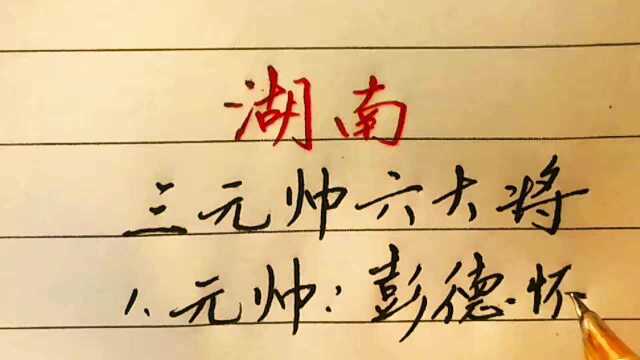 湖南
三元帅六大将
1、元帅：彭德怀